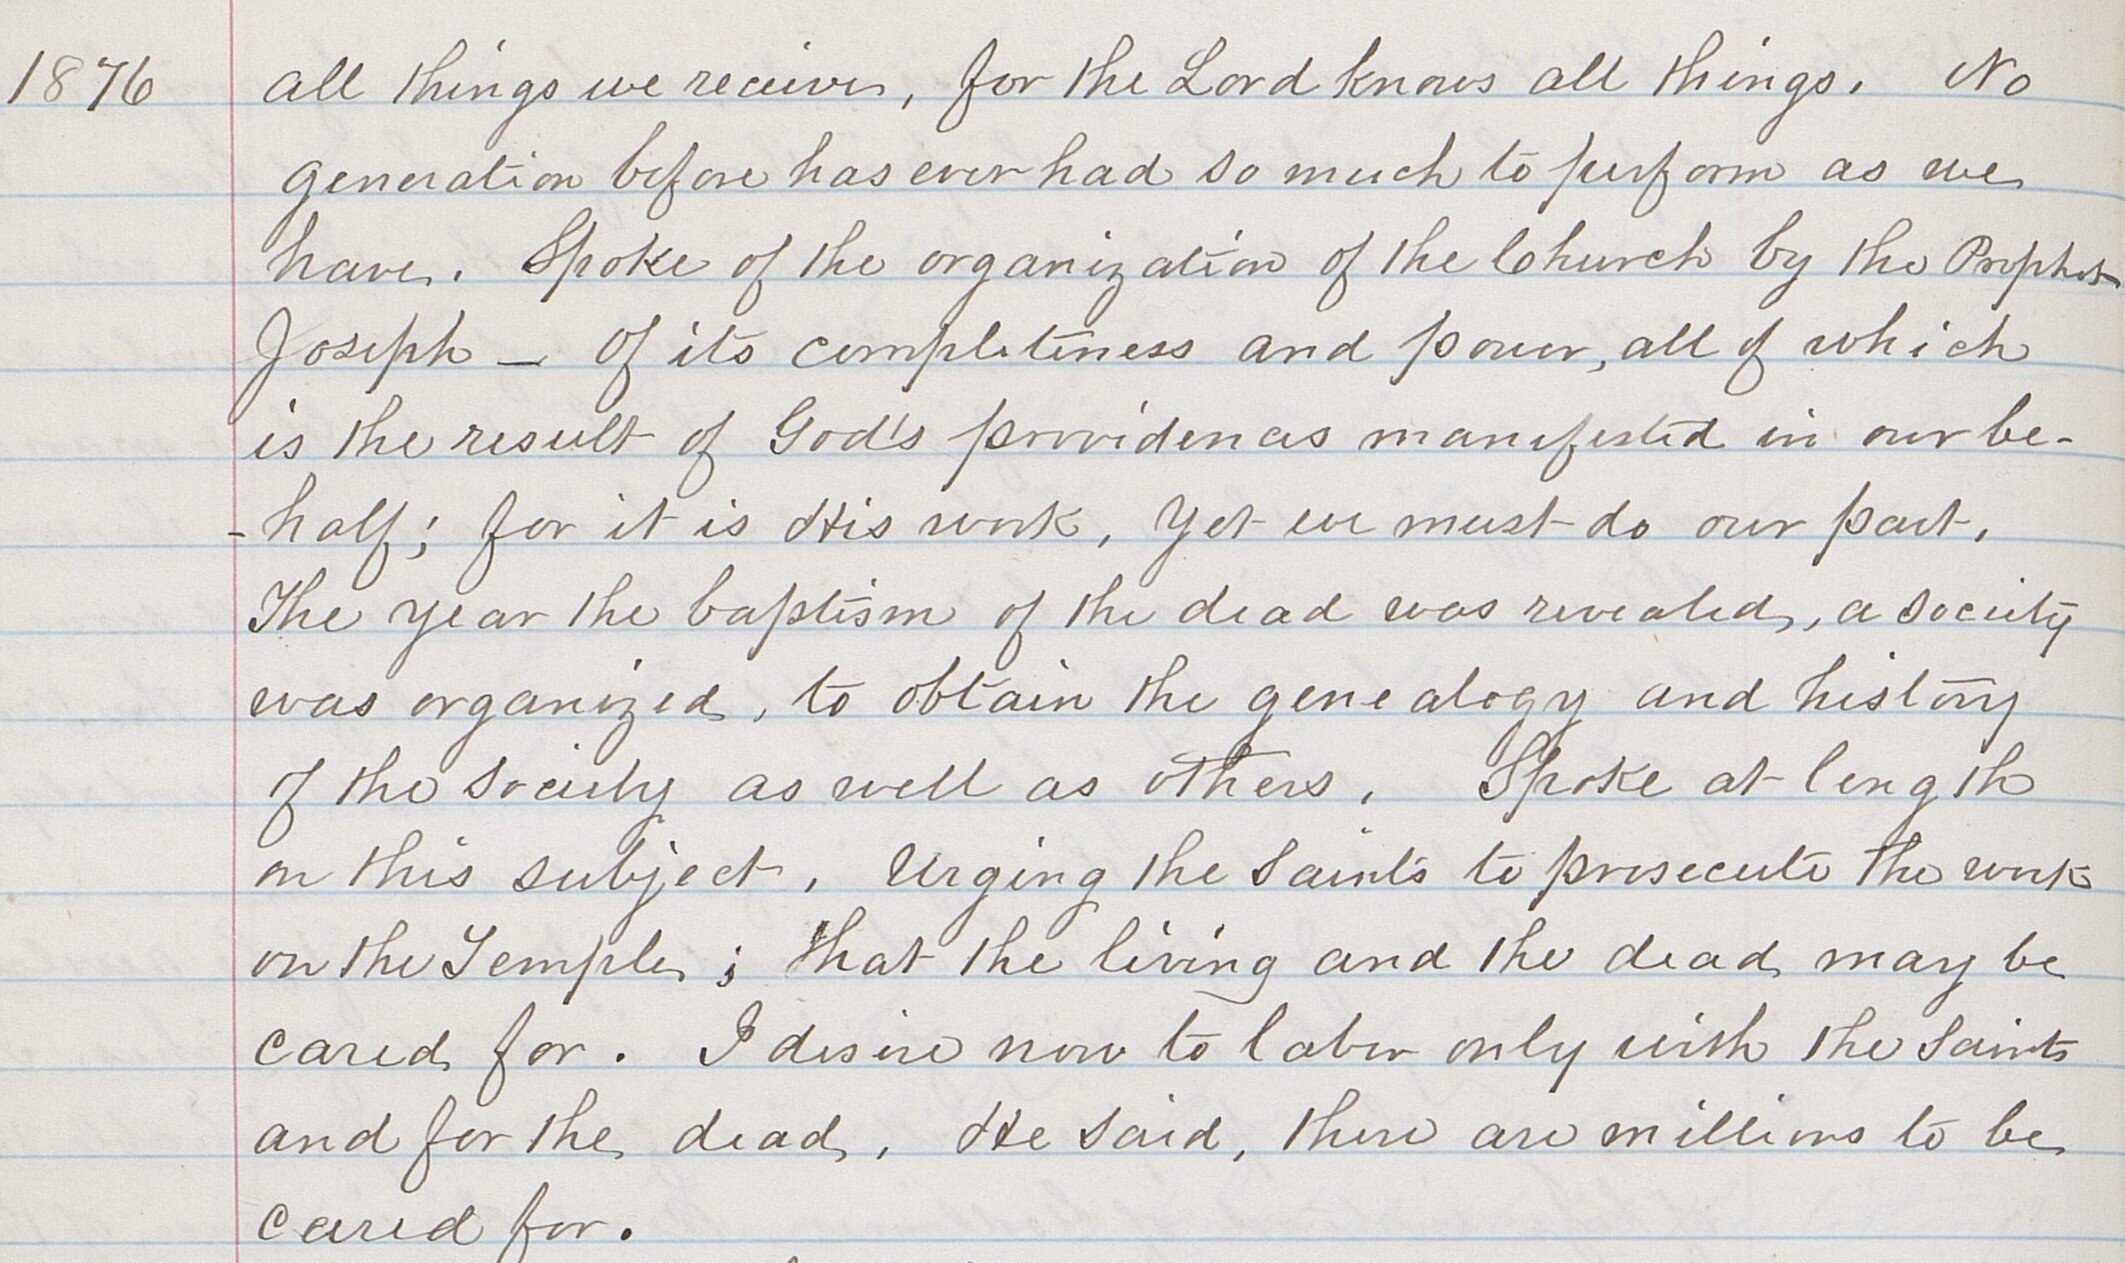 1876 all things we receive, for the Lord knows all things. No
generation before has ever had so much to perform as we
have. Spoke of the organization of the Church by the Prophet
Joseph — of its completeness and power, all of which
is the result of God's providences manifested in our be-
-half; for it is His work, yet we must do our part.
The year the baptism of the dead was revealed, a society
was organized, to obtain the genealogy and history
of the society as well as others. Spoke at length
on this subject, Urging the Saints to prosecute the work
on the Temple; that the living and the dead may be
cared for. I desire now to labor only with the Saints
and for the dead. He said, there are millions to be
cared for.